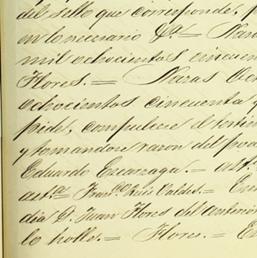 del sello que corresponde, p
en lo necesario &ª = Nava
mil ochocientos cincuen
Flores. = Navas
ochocientos cincuenta y
pide, comparece el testim
y tomandose razon del po
Eduardo = ast.
ast.ª Fran.co Ruis Valdes. =
dia D. Juan Flores del anterior
lo = Flores. =